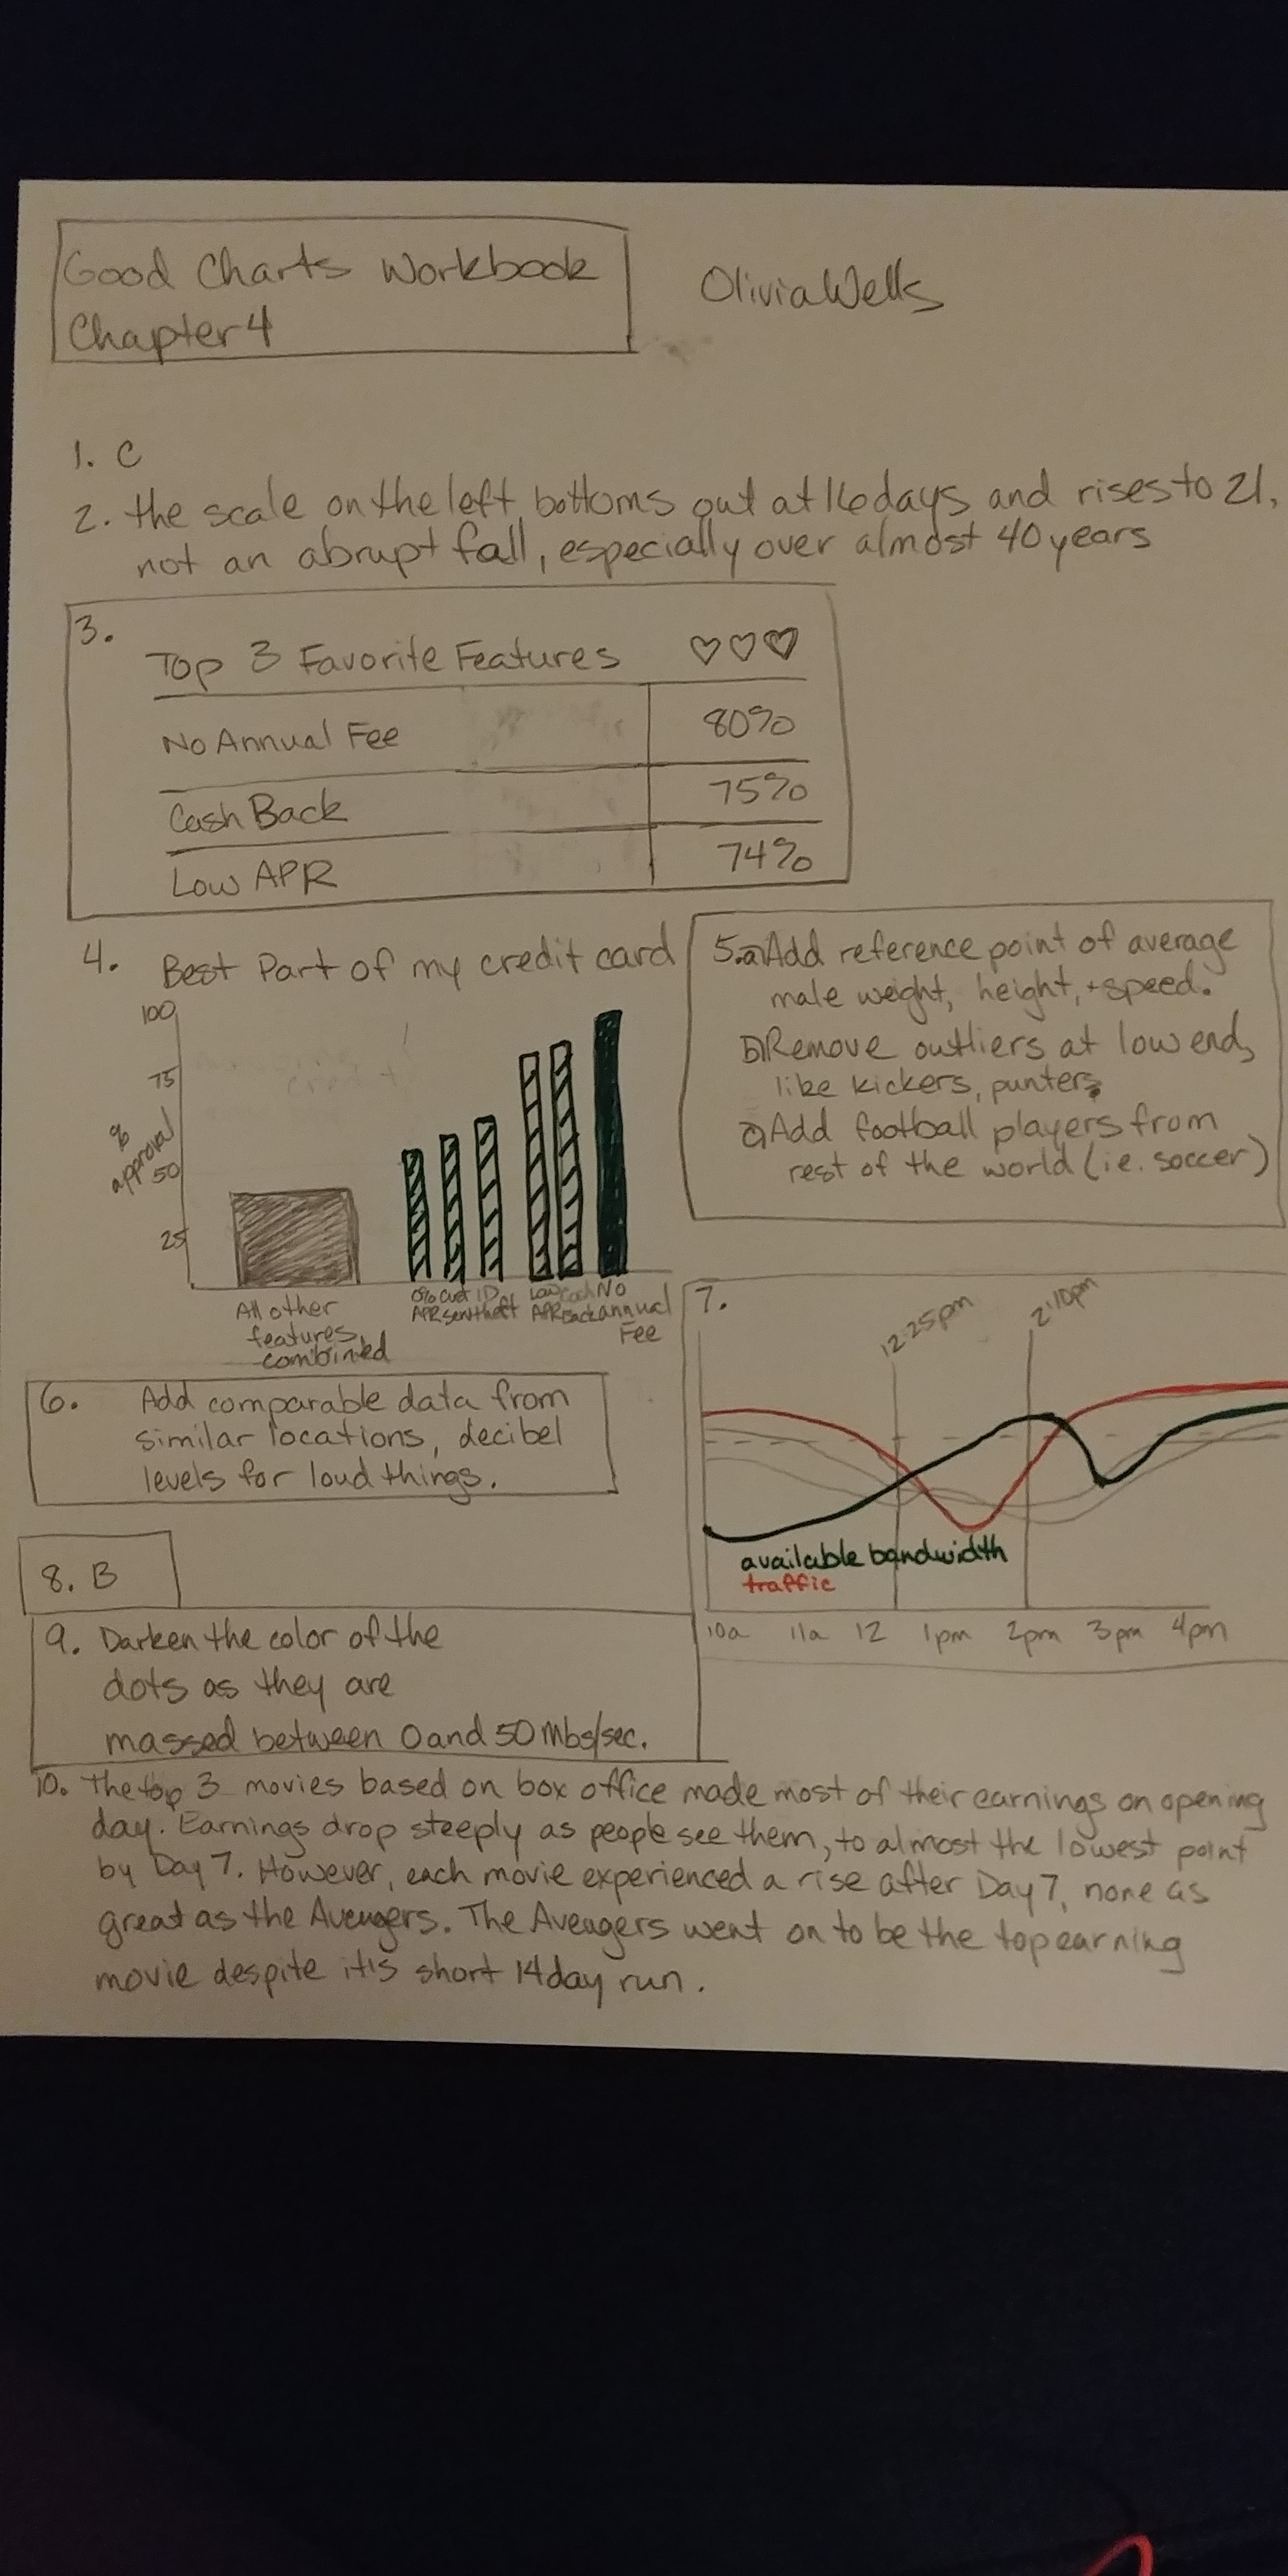 Good Charts Workbook
Chapter 4
Olivia Wells
1. C
2. the scale on the left bottoms out at 16 days and rises to 21,
not an abrupt fall, especially over almost 40 years
3. Top 3 Favorite Features ♡♡♡
No Annual Fee 80%
Cash Back 75%
Low APR 74%
4. Best Part of my credit card
100
75
% approval
50
25
All other
features
combined
No
annual
Fee
5. a) Add reference point of average
male weight, height, + speed.
b) Remove outliers at low end,
like kickers, punters
c) Add football players from
rest of the world (ie. soccer)
6. Add comparable data from
similar locations, decibel
levels for loud things.
7.
12:25pm
2:10pm
available bandwidth
traffic
10a 11a 12 1pm 2pm 3pm 4pm
8. B
9. Darken the color of the
dots as they are
massed between 0 and 50 Mbs/sec.
10. the top 3 movies based on box office made most of their earnings on opening
day. Earnings drop steeply as people see them, to almost the lowest point
by Day 7. However, each movie experienced a rise after Day 7, none as
great as the Avengers. The Avengers went on to be the top earning
movie despite it's short 14 day run.